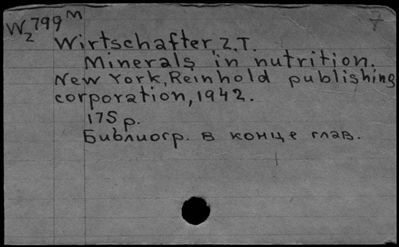 W799м
2
Wirtschafter, Z.T.
Minerals in nutrition.
New York, Reinhold publishing
corporation, 1942.
175 p.
Библиогр. в конце глав.